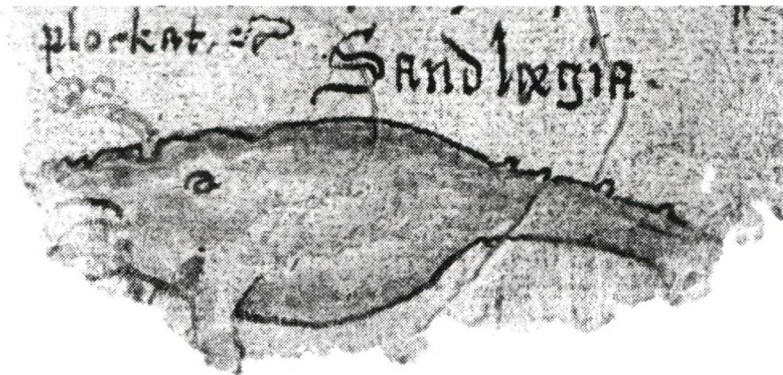 plockat.
Sandlægia.